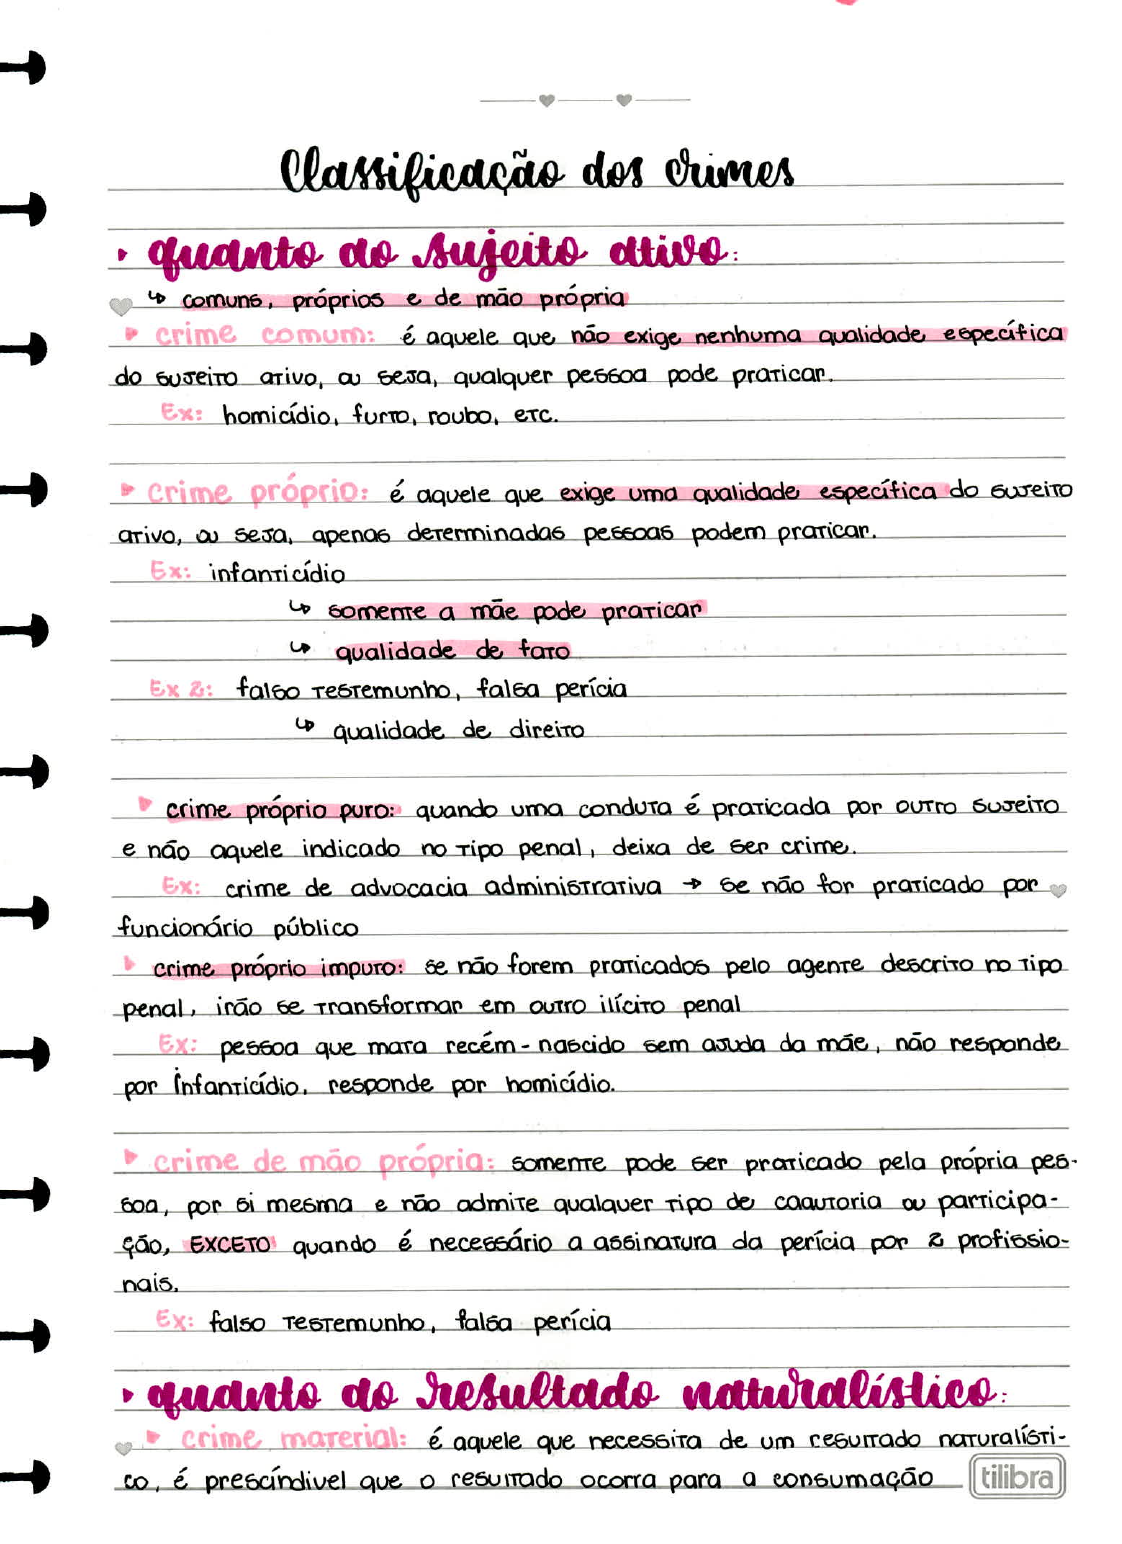 Classificação dos crimes
quanto ao sujeito ativo:
↳ comuns, próprios e de mão própria
crime comum: é aquele que não exige nenhuma qualidade específica
do sujeito ativo, ou seja, qualquer pessoa pode praticar.
Ex: homicídio, furto, roubo, etc.
crime próprio: é aquele que exige uma qualidade específica do sujeito
ativo, ou seja, apenas determinadas pessoas podem praticar.
Ex: infanticídio
↳ somente a mãe pode praticar
↳ qualidade de fato
Ex 2: falso testemunho, falsa perícia
↳ qualidade de direito
crime próprio puro: quando uma conduta é praticada por outro sujeito
e não aquele indicado no tipo penal, deixa de ser crime.
Ex: crime de advocacia administrativa → se não for praticado por
funcionário público
crime próprio impuro: se não forem praticados pelo agente descrito no tipo
penal, irão se transformar em outro ilícito penal
Ex: pessoa que mata recém-nascido sem ajuda da mãe, não responde
por infanticídio, responde por homicídio.
crime de mão própria: somente pode ser praticado pela própria pes-
soa, por si mesma e não admite qualquer tipo de coautoria ou participa-
ção, EXCETO quando é necessário a assinatura da perícia por 2 profissio-
nais.
Ex: falso testemunho, falsa perícia
quanto ao resultado naturalístico:
crime material: é aquele que necessita de um resultado naturalísti-
co, é prescíndivel que o resultado ocorra para a consumação
tilibra